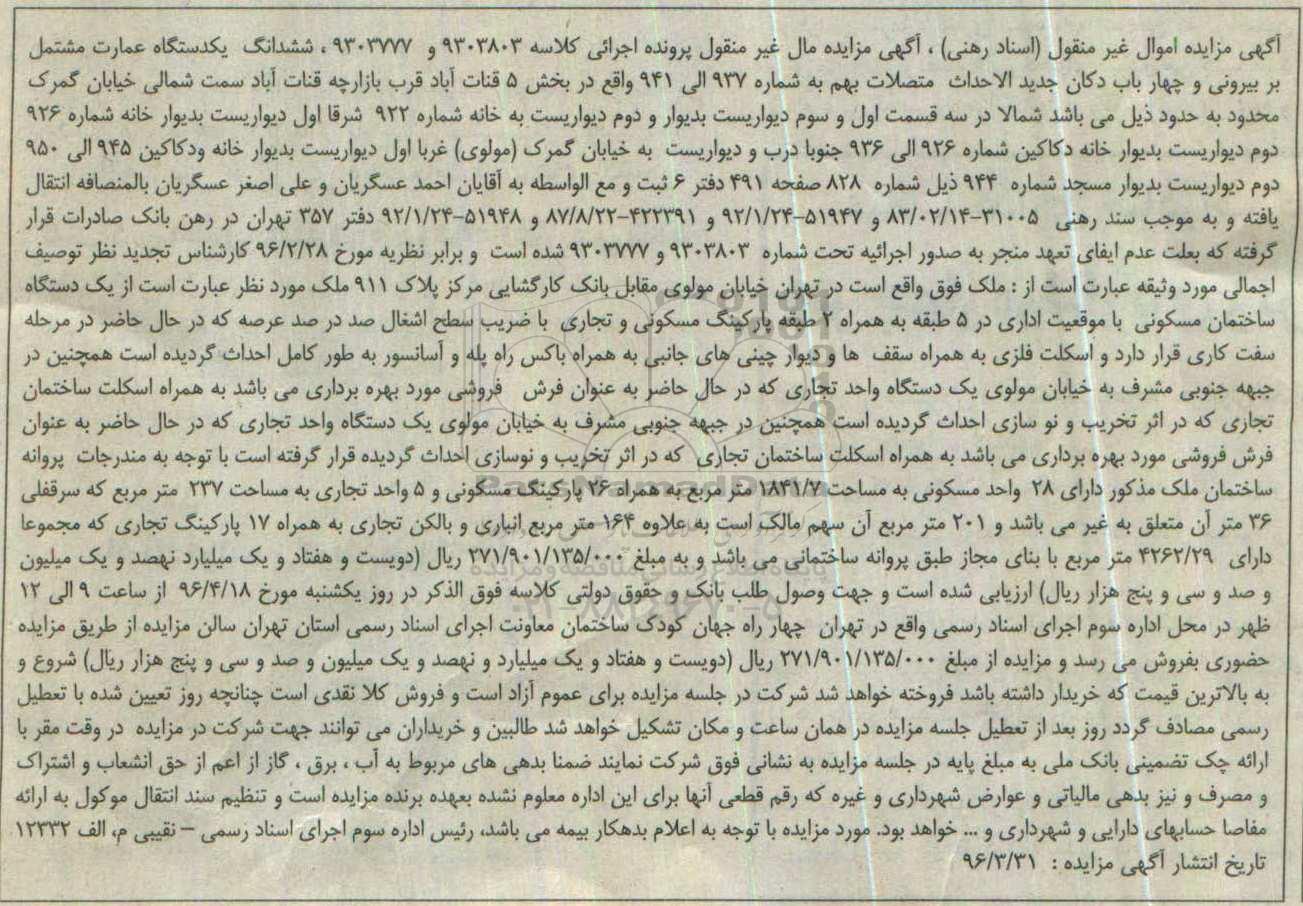 آگهی مزایده اموال غیر منقول (اسناد رهنی) ، آگهی مزایده مال غیر منقول پرونده اجرائی کلاسه ۹۳۰۳۸۰۳ و ۹۳۰۳۷۷۷ ، ششدانگ یکدستگاه عمارت مشتمل
بر بیرونی و چهار باب دکان جدید الاحداث متصلات بهم به شماره ۹۳۷ الی ۹۴۱ واقع در بخش ۵ قنات آباد قرب بازارچه قنات آباد سمت شمالی خیابان گمرک
محدود به حدود ذیل می باشد شمالا در سه قسمت اول و سوم دیواریست بدیوار و دوم دیواریست به خانه شماره ۹۲۲ شرقا اول دیواریست بدیوار خانه شماره ۹۲۶
دوم دیواریست بدیوار خانه دکاکین شماره ۹۲۶ الی ۹۳۶ جنوبا درب و دیواریست به خیابان گمرک (مولوی) غربا اول دیواریست بدیوار خانه ودکاکین ۹۴۵ الی ۹۵۰
دوم دیواریست بدیوار مسجد شماره ۹۴۴ ذیل شماره ۸۲۸ صفحه ۴۹۱ دفتر ۶ ثبت و مع الواسطه به آقایان احمد عسگریان و علی اصغر عسگریان بالمنصافه انتقال
یافته و به موجب سند رهنی ۳۱۰۰۵-۸۳/۰۲/۱۴ و ۵۱۹۴۷-۹۲/۱/۲۴ و ۴۲۲۳۹۱-۸۷/۸/۲۲ و ۵۱۹۴۸-۹۲/۱/۲۴ دفتر ۳۵۷ تهران در رهن بانک صادرات قرار
گرفته که بعلت عدم ایفای تعهد منجر به صدور اجرائیه تحت شماره ۹۳۰۳۸۰۳ و ۹۳۰۳۷۷۷ شده است و برابر نظریه مورخ ۹۶/۲/۲۸ کارشناس تجدید نظر توصیف
اجمالی مورد وثیقه عبارت است از : ملک فوق واقع است در تهران خیابان مولوی مقابل بانک کارگشایی مرکز پلاک ۹۱۱ ملک مورد نظر عبارت است از یک دستگاه
ساختمان مسکونی با موقعیت اداری در ۵ طبقه به همراه ۲ طبقه پارکینگ مسکونی و تجاری با ضریب سطح اشغال صد در صد عرصه که در حال حاضر در مرحله
سفت کاری قرار دارد و اسکلت فلزی به همراه سقف ها و دیوار چینی های جانبی به همراه باکس راه پله و آسانسور به طور کامل احداث گردیده است همچنین در
جبهه جنوبی مشرف به خیابان مولوی یک دستگاه واحد تجاری که در حال حاضر به عنوان فرش فروشی مورد بهره برداری می باشد به همراه اسکلت ساختمان
تجاری که در اثر تخریب و نو سازی احداث گردیده است همچنین در جبهه جنوبی مشرف به خیابان مولوی یک دستگاه واحد تجاری که در حال حاضر به عنوان
فرش فروشی مورد بهره برداری می باشد به همراه اسکلت ساختمان تجاری که در اثر تخریب و نوسازی احداث گردیده قرار گرفته است با توجه به مندرجات پروانه
ساختمان ملک مذکور دارای ۲۸ واحد مسکونی به مساحت ۱۸۴۱/۷ متر مربع به همراه ۲۶ پارکینگ مسکونی و ۵ واحد تجاری به مساحت ۲۳۷ متر مربع که سرقفلی
۳۶ متر آن متعلق به غیر می باشد و ۲۰۱ متر مربع آن سهم مالک است به علاوه ۱۶۴ متر مربع انباری و بالکن تجاری به همراه ۱۷ پارکینگ تجاری که مجموعا
دارای ۴۲۶۲/۲۹ متر مربع با بنای مجاز طبق پروانه ساختمانی می باشد و به مبلغ ۲۷۱/۹۰۱/۱۳۵/۰۰۰ ریال (دویست و هفتاد و یک میلیارد نهصد و یک میلیون
و صد و سی و پنج هزار ریال) ارزیابی شده است و جهت وصول طلب بانک و حقوق دولتی کلاسه فوق الذکر در روز یکشنبه مورخ ۹۶/۴/۱۸ از ساعت ۹ الی ۱۲
ظهر در محل اداره سوم اجرای اسناد رسمی واقع در تهران چهار راه جهان کودک ساختمان معاونت اجرای اسناد رسمی استان تهران سالن مزایده از طریق مزایده
حضوری بفروش می رسد و مزایده از مبلغ ۲۷۱/۹۰۱/۱۳۵/۰۰۰ ریال (دویست و هفتاد و یک میلیارد و نهصد و یک میلیون و صد و سی و پنج هزار ریال) شروع و
به بالاترین قیمت که خریدار داشته باشد فروخته خواهد شد شرکت در جلسه مزایده برای عموم آزاد است و فروش کلا نقدی است چنانچه روز تعیین شده با تعطیل
رسمی مصادف گردد روز بعد از تعطیل جلسه مزایده در همان ساعت و مکان تشکیل خواهد شد طالبین و خریداران می توانند جهت شرکت در مزایده در وقت مقر با
ارائه چک تضمینی بانک ملی به مبلغ پایه در جلسه مزایده به نشانی فوق شرکت نمایند ضمنا بدهی های مربوط به آب ، برق ، گاز از اعم از حق انشعاب و اشتراک
و مصرف و نیز بدهی مالیاتی و عوارض شهرداری و غیره که رقم قطعی آنها برای این اداره معلوم نشده بعهده برنده مزایده است و تنظیم سند انتقال موکول به ارائه
مفاصا حسابهای دارایی و شهرداری و ... خواهد بود. مورد مزایده با توجه به اعلام بدهکار بیمه می باشد، رئیس اداره سوم اجرای اسناد رسمی – نقیبی م، الف ۱۲۳۳۲
تاریخ انتشار آگهی مزایده : ۹۶/۳/۳۱